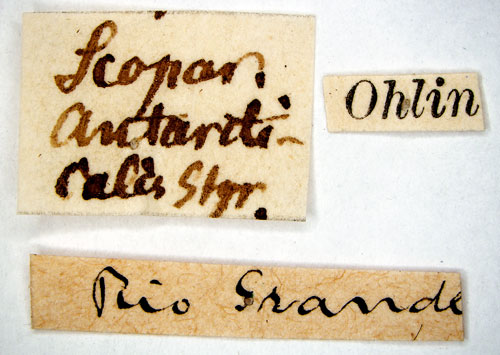 Scopar.
Antarcti-
calis Stgr.
Ohlin
Rio Grande